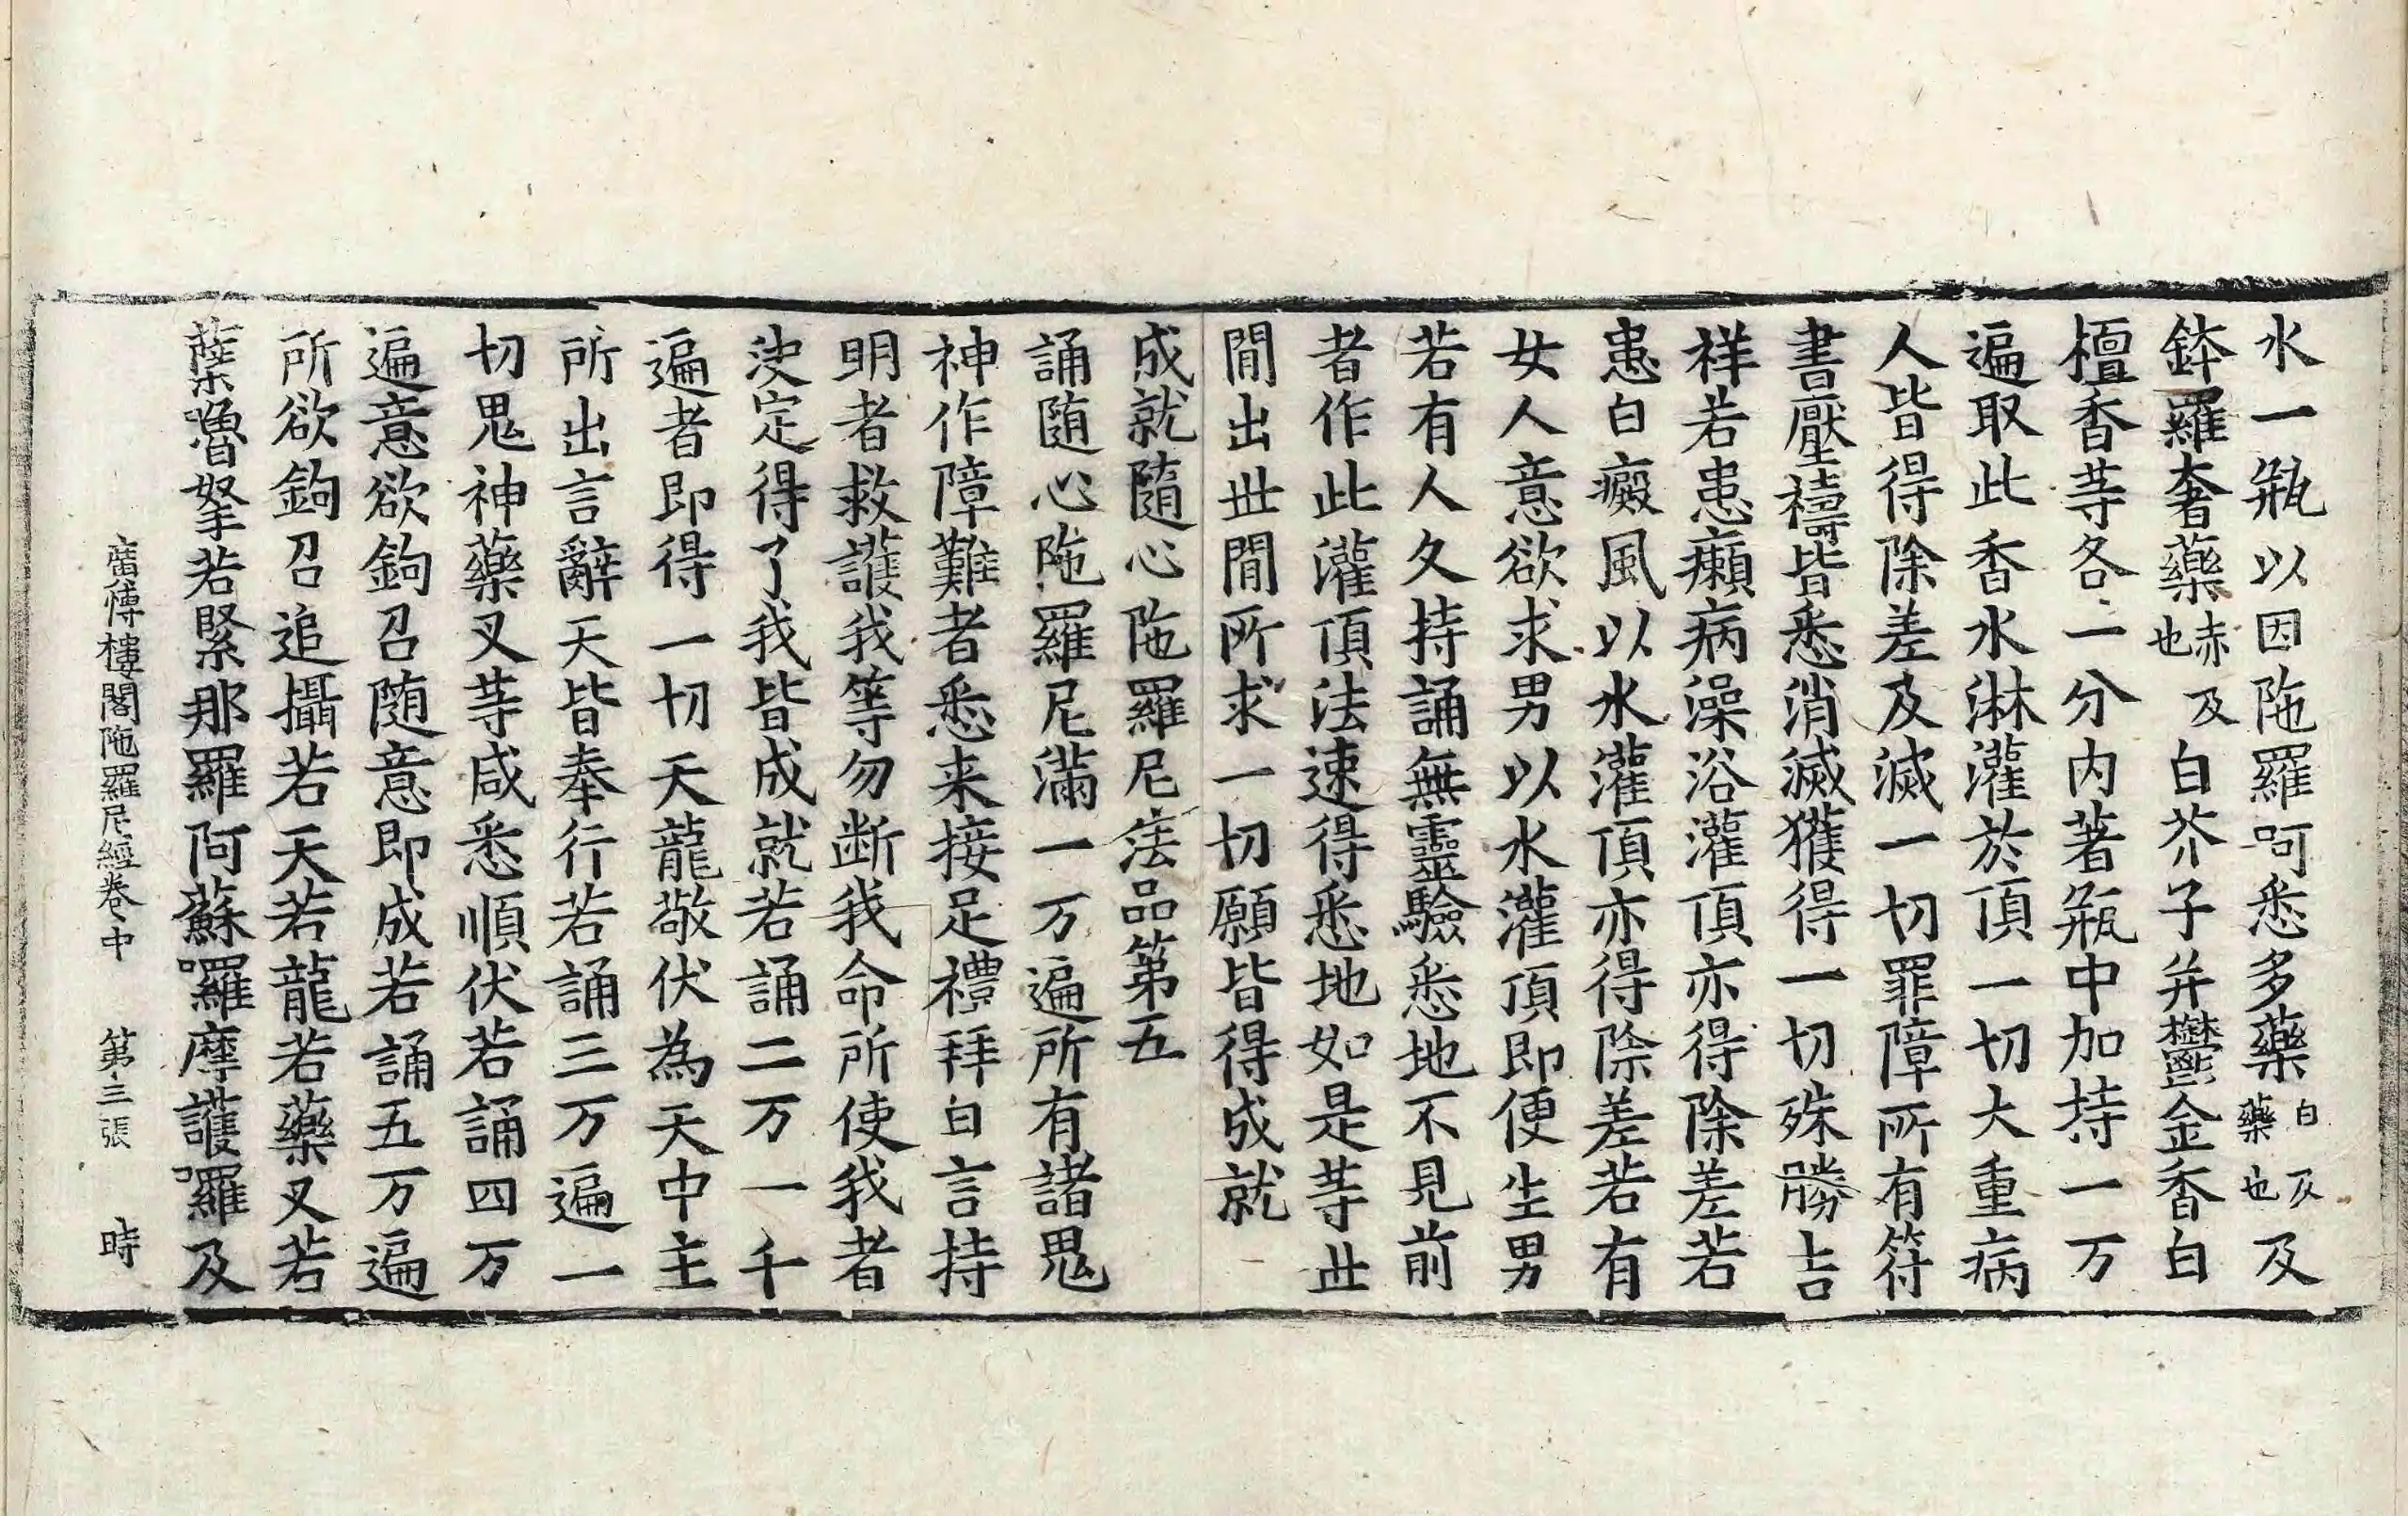 水一瓶以因陁羅呵悉多藥白及藥也及
鉢羅奢藥赤也及白芥子并欝金香白
檀香䒭各二分内著瓶中加持一万
遍取此香水淋灌於頂一切大重病
人皆得除差及滅一切罪障所有符
書壓禱皆悉消滅獲得一切殊勝吉
祥若患癩病澡浴灌頂亦得除差若
患白癜風以水灌頂亦得除差若有
女人意欲求男以水灌頂即便生男
若有人久持誦無靈驗悉地不見前
者作此灌頂法速得悉地如是䒭世
間出世間所求一切願皆得成就
成就隨心陁羅尼法品第五
誦随心陁羅尼滿一万遍所有諸鬼
神作障難者悉来接足禮拜白言持
明者救護我等勿断我命所使我者
决定得了我皆成就若誦二万一千
遍者即得一切天龍敬伏為天中主
所出言辭天皆奉行若誦三万遍一
切鬼神藥叉䒭咸悉順伏若誦四万
遍意欲鉤召随意即成若誦五万遍
所欲鉤召追攝若天若龍若藥叉若
蘖嚕拏若緊那羅阿蘇囉摩護囉及
廣博樓閣陁羅尼經卷中 第三張 時